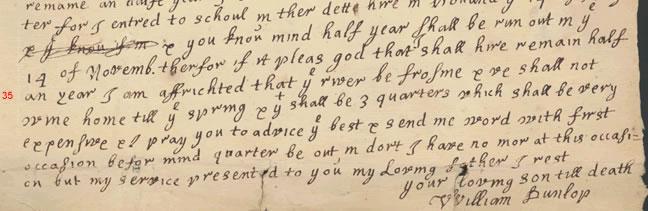 remane an halfe year
ter for I entred to school in ther dette hire in
& if know if in & you know mind half year shall be run out in yͤ
14 of Novemb. therfor if it pleas god that shall hire remain half
35 an year I am affrichted that yͤ river be frosne & we shall not
wine home till yͤ spring & yͭ shall be 3 quarters which shall be very
expensive & I pray you to advice yͤ best & send me word with first
occasion befor mind quarter be out in dort I have no mor at this occasi=
on but my service presented to you my loving father I rest
your loving son till death
William Dunlop